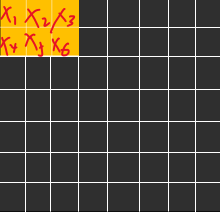 x₁ x₂ x₃
x₄ x₅ x₆